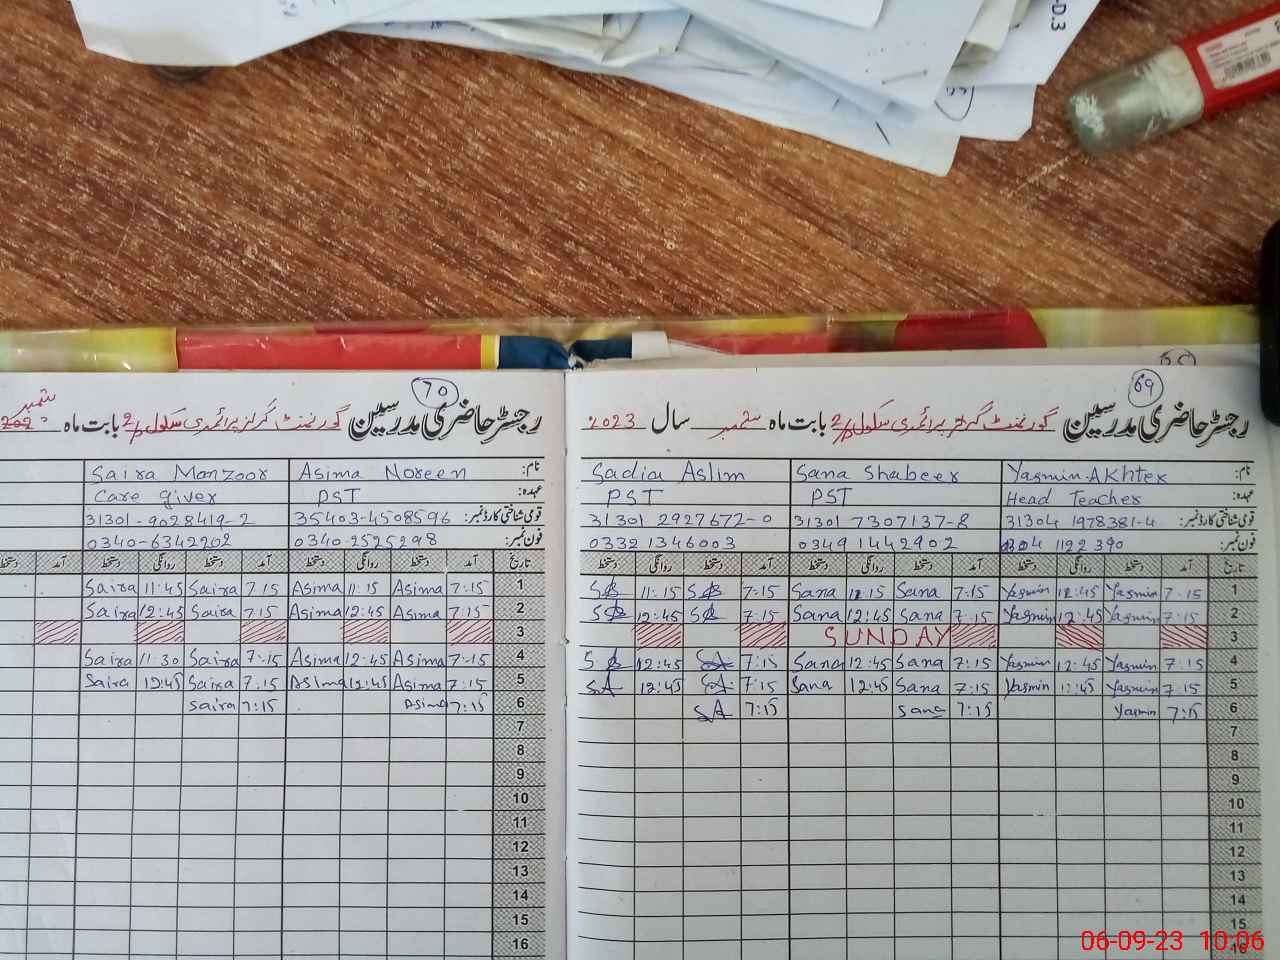 D.3
70
رجسٹر حاضری مدرسین گورنمنٹ گرلز پرائمری سکول بابت ماہ ستمبر
نام: Asima Noreen Saira Manzoor
عہدہ: PST Care giver
قومی شناختی کارڈ نمبر: 35403-4508596 31301-9028419-2
فون نمبر: 0340-2525298 0340-6342202
تاریخ آمد دستخط روانگی دستخط آمد دستخط روانگی دستخط آمد دستخط
1 7:15 Asima 11:15 Asima 7:15 Saira 11:45 Saira
2 7:15 Asima 12:45 Asima 7:15 Saira 12:45 Saira
3
4 7:15 Asima 12:45 Asima 7:15 Saira 11:30 Saira
5 7:15 Asima 12:45 Asima 7:15 Saira 12:45 Saira
6 7:15 Asima 7:15 Saira
7
8
9
10
11
12
13
14
15
16
69
رجسٹر حاضری مدرسین گورنمنٹ گرلز پرائمری سکول بابت ماہ ستمبر سال 2023
نام: Yasmin Akhter Sana Shabeer Sadia Aslim
عہدہ: Head Teacher PST PST
قومی شناختی کارڈ نمبر: 31304 1978381-4 31301 7307137-8 31301 2927672-0
فون نمبر: 0304 1122390 0349 1442902 0332 1346003
تاریخ آمد دستخط روانگی دستخط آمد دستخط روانگی دستخط آمد دستخط روانگی دستخط
1 7:15 Yasmin 12:45 Yasmin 7:15 Sana 11:15 Sana 7:15 11:15
2 7:15 Yasmin 12:45 Yasmin 7:15 Sana 12:45 Sana 7:15 12:45
3 SUNDAY
4 7:15 Yasmin 12:45 Yasmin 7:15 Sana 12:45 Sana 7:15 SA 12:45
5 7:15 Yasmin 12:45 Yasmin 7:15 Sana 12:45 Sana 7:15 SA 12:45 SA
6 7:15 Yasmin 7:15 Sana 7:15 SA
7
8
9
10
11
12
13
14
15
16
06-09-23 10:06